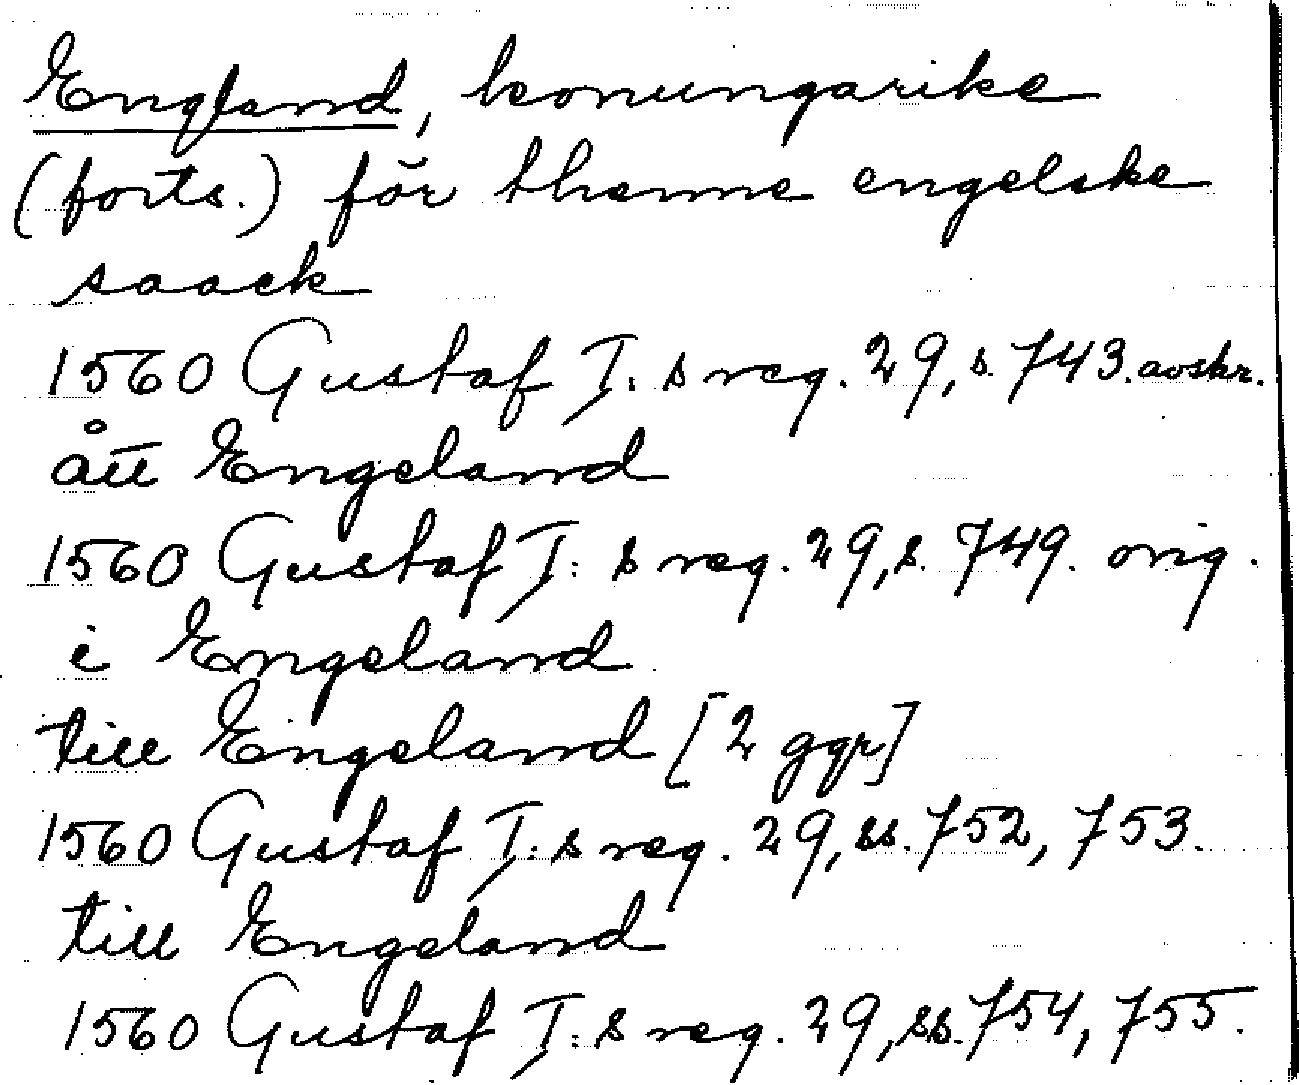 England, konungarike
(forts.) för thenne engelske
saack
1560 Gustaf I:s reg. 29, s. 743. avskr.
ått Engeland
1560 Gustaf I:s reg. 29, s. 749. orig.
i Engeland
till Engeland [2 ggr]
1560 Gustaf I:s reg. 29, ss. 752, 753.
till Engeland
1560 Gustaf I:s reg. 29, ss. 754, 755.